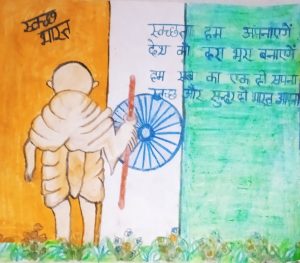 स्वच्छ
भारत
स्वच्छता हम अपनाएगें
देश को हरा भरा बनाएगें
हम सब का एक ही सपना
स्वच्छ और सुन्दर हो भारत अपना